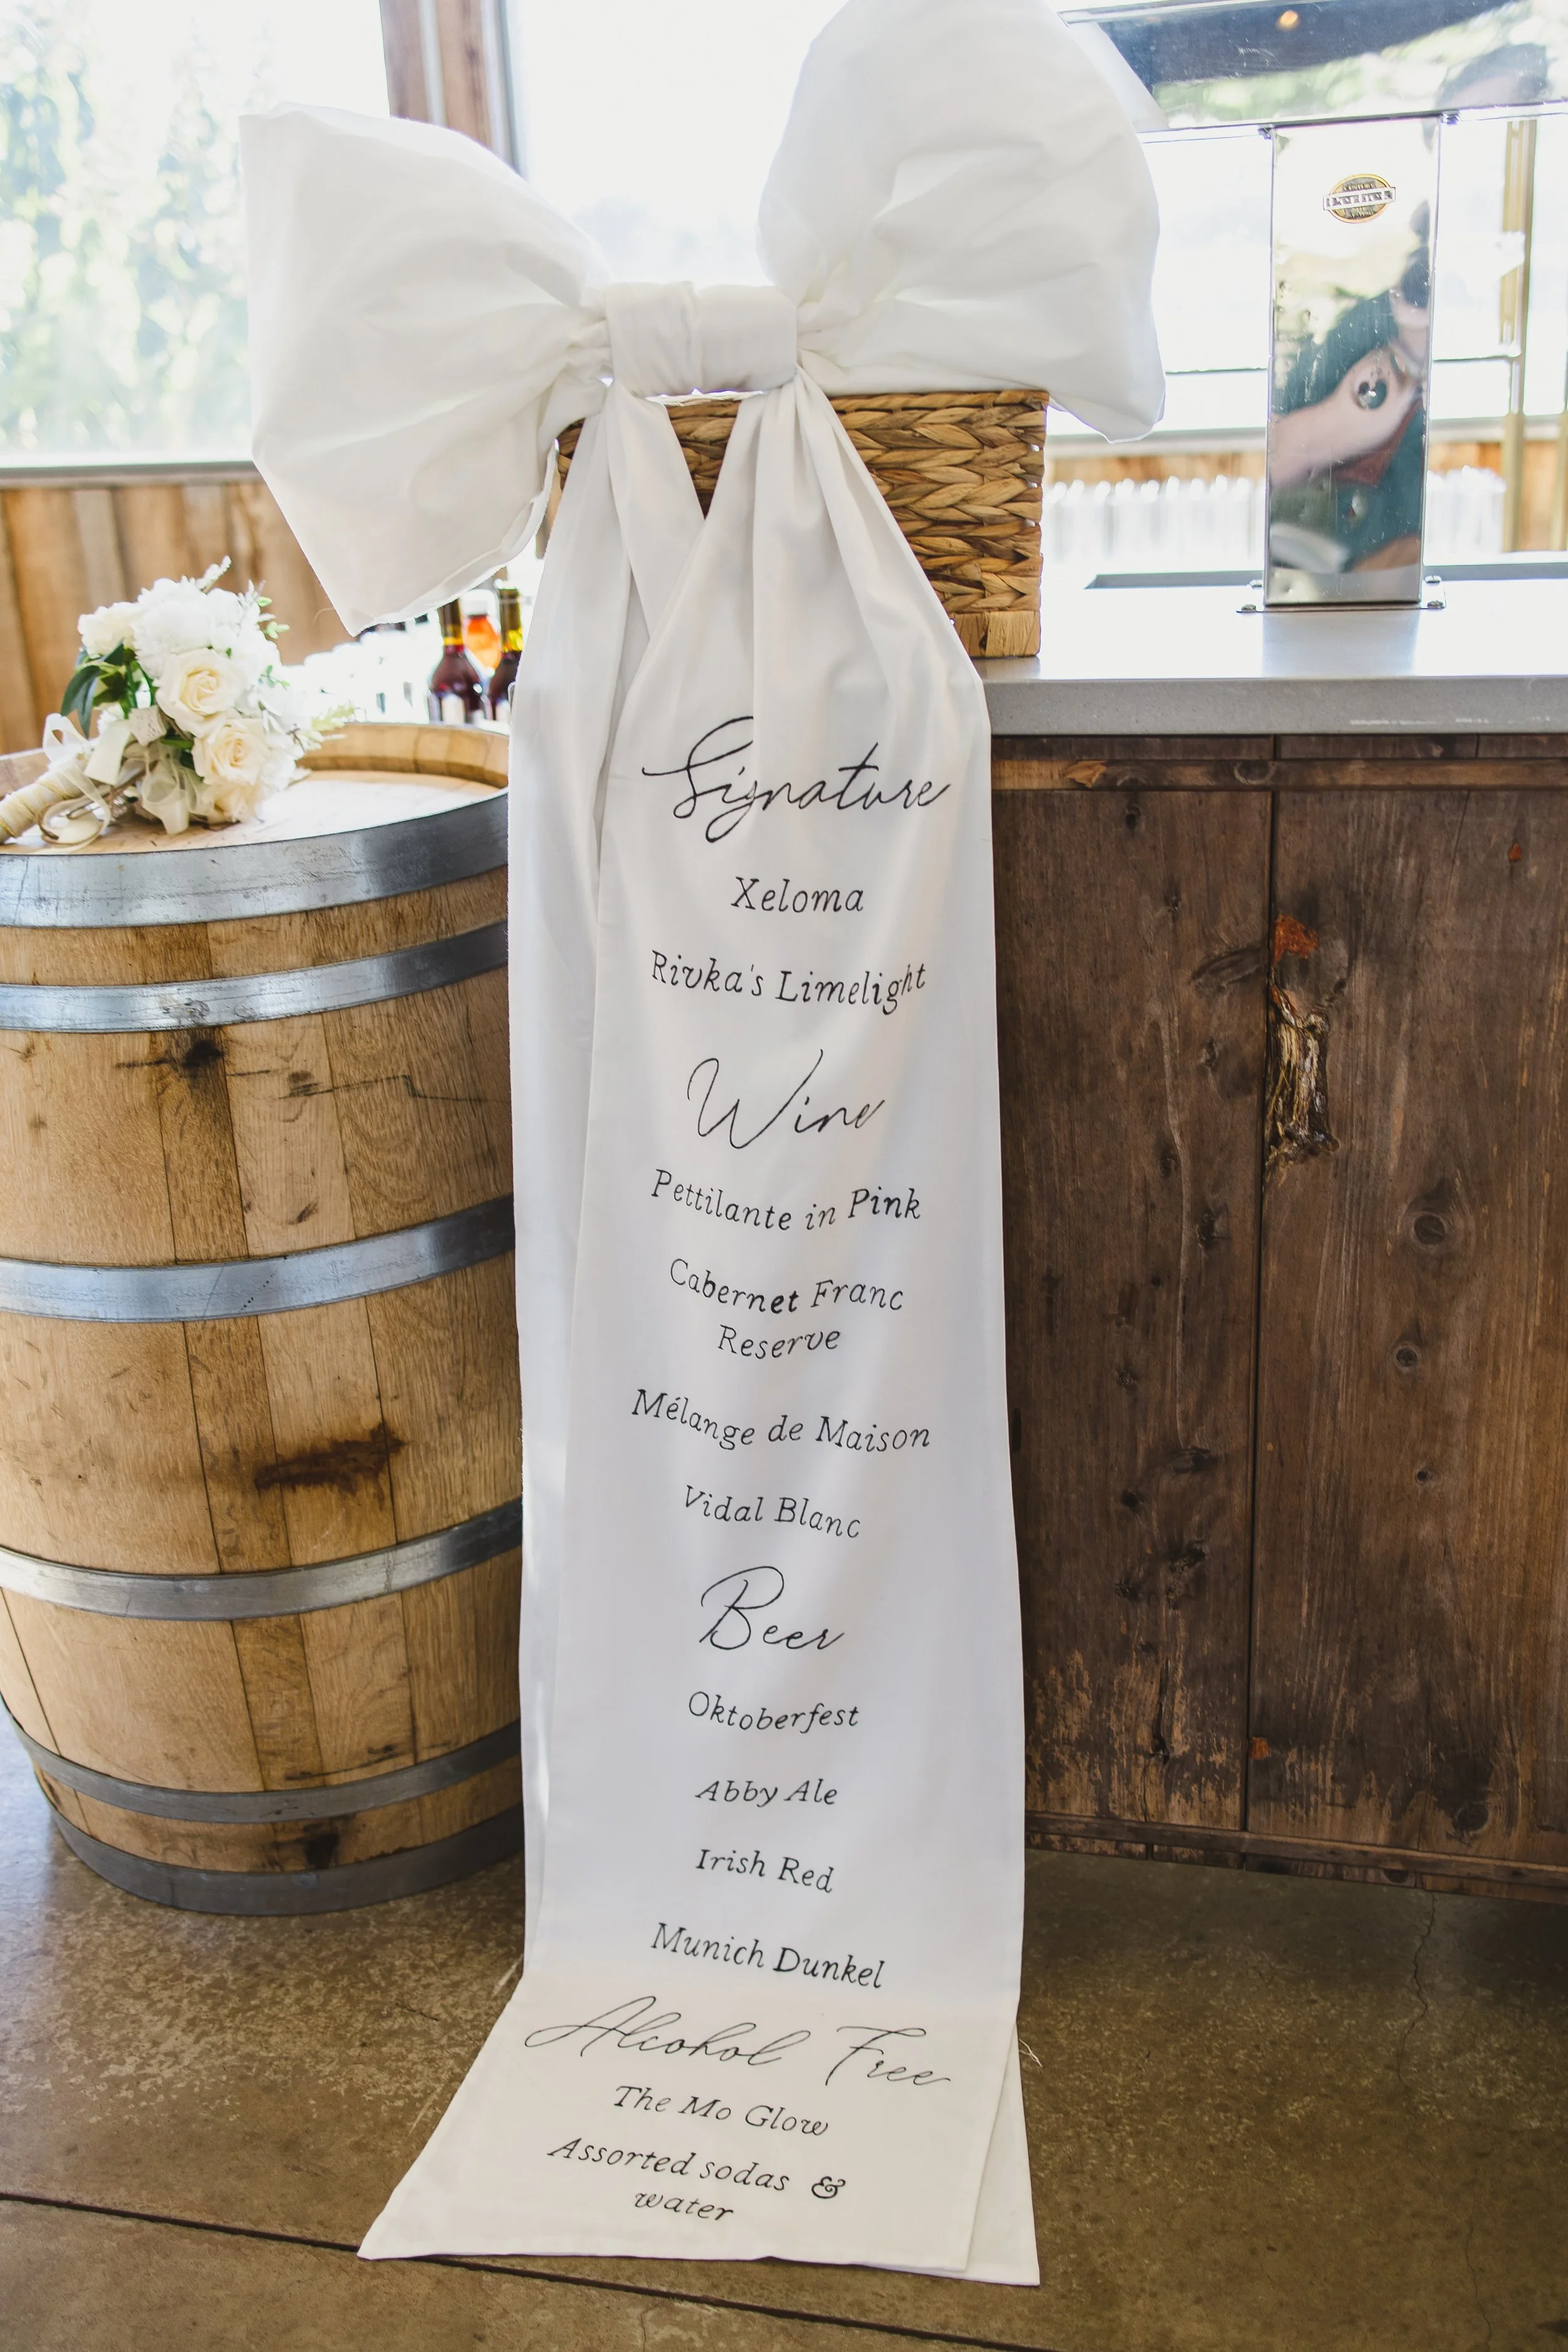 Signature
Xeloma
Rivka's Limelight
Wine
Pettilante in Pink
Cabernet Franc
Reserve
Mélange de Maison
Vidal Blanc
Beer
Oktoberfest
Abby Ale
Irish Red
Munich Dunkel
Alcohol Free
The Mo Glow
Assorted sodas &
water